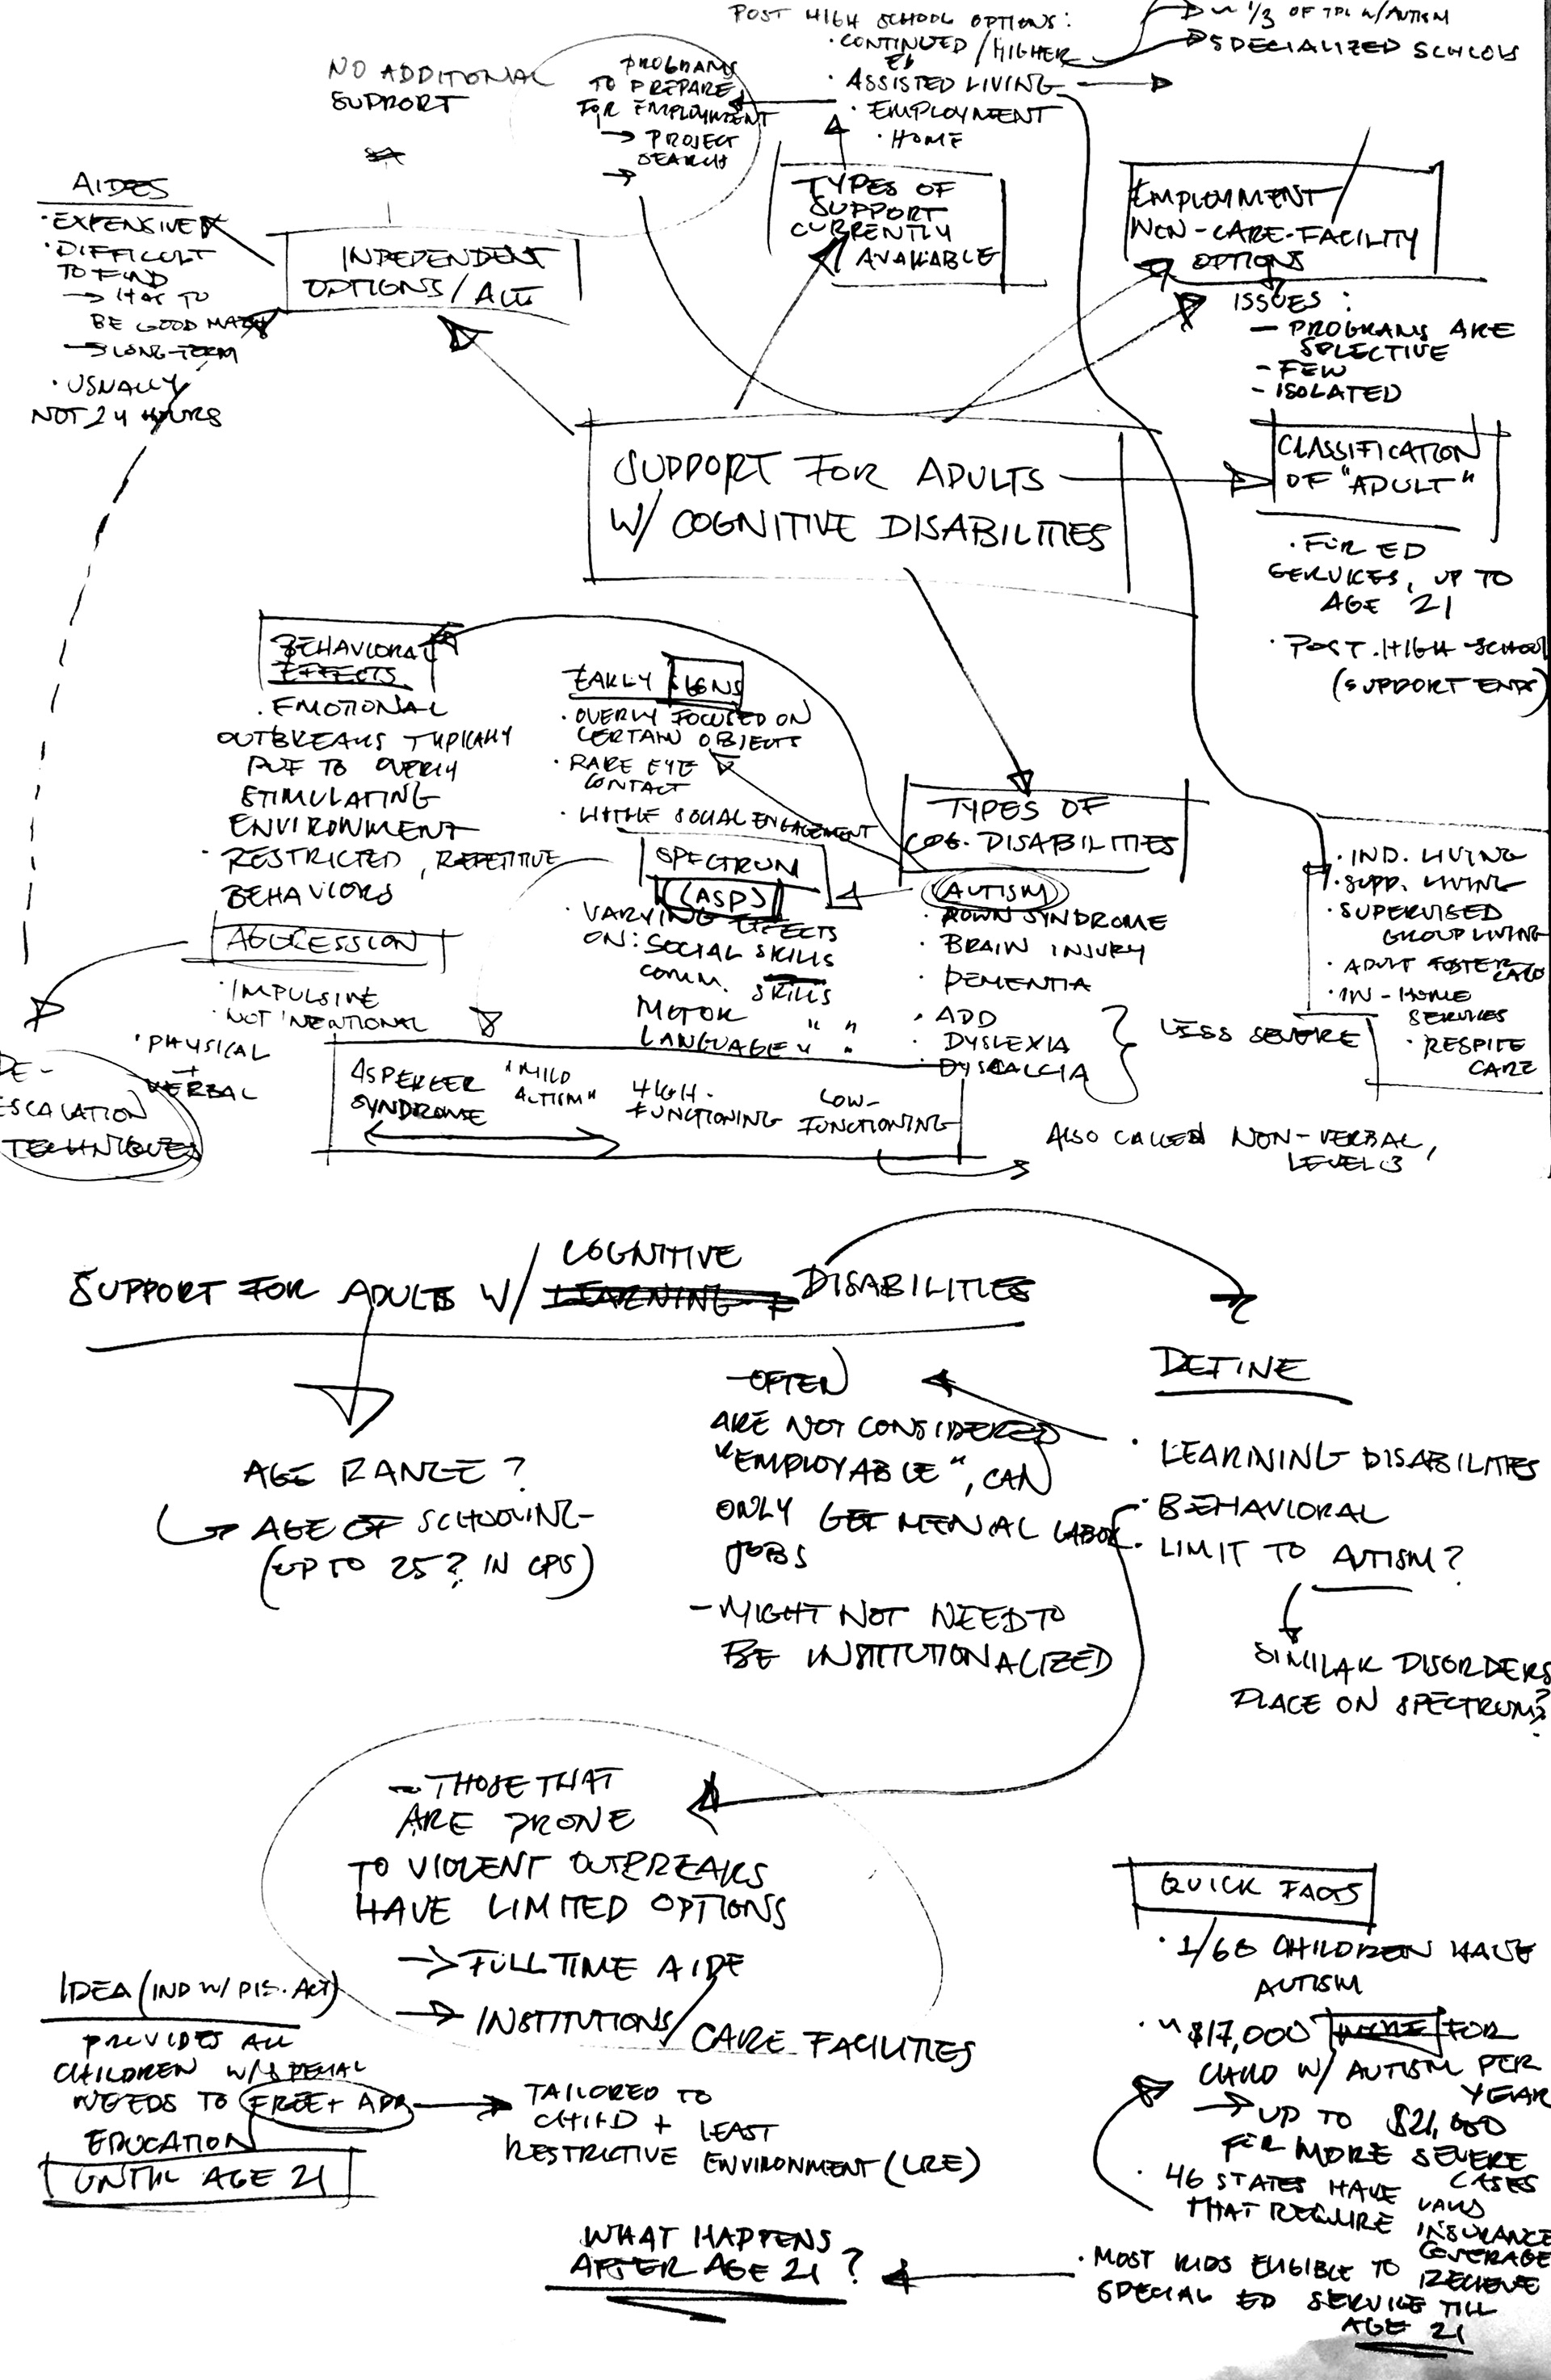 POST HIGH SCHOOL OPTIONS:
· CONTINUED / HIGHER
ED
· ASSISTED LIVING
· EMPLOYMENT
· HOME
~ 1/3 OF W/ AUTISM
SPECIALIZED SCHOOLS
NO ADDITIONAL
SUPPORT
PROGRAMS
TO PREPARE
FOR EMPLOYMENT
→ PROJECT
SEARCH
→
AIDES
· EXPENSIVE
· DIFFICULT
TO FIND
→ HAS TO
BE GOOD MATCH
→ LONG-TERM
· USUALLY
NOT 24 HOURS
INDEPENDENT
OPTIONS / ALT
TYPES OF
SUPPORT
CURRENTLY
AVAILABLE
EMPLOYMENT/
NON-CARE-FACILITY
OPTIONS
ISSUES:
- PROGRAMS ARE
SELECTIVE
- FEW
- ISOLATED
SUPPORT FOR ADULTS
W/ COGNITIVE DISABILITIES
CLASSIFICATION
OF "ADULT"
· FOR ED
SERVICES, UP TO
AGE 21
· POST-HIGH-SCHOOL
(SUPPORT ENDS)
BEHAVIORAL
EFFECTS
· EMOTIONAL
OUTBREAKS TYPICALLY
DUE TO OVERLY
STIMULATING
ENVIRONMENT
· RESTRICTED, REPETITIVE
BEHAVIORS
AGGRESSION
· IMPULSIVE
· NOT INENTIONAL
· PHYSICAL
+
VERBAL
DE-
ESCALATION
TECHNIQUES
EARLY SIGNS
· OVERLY FOCUSED ON
CERTAIN OBJECTS
· RARE EYE
CONTACT
· LITTLE SOCIAL ENGAGEMENT
SPECTRUM
(ASD)
· VARYING EFFECTS
ON: SOCIAL SKILLS
COMM. SKILLS
MOTOR " "
LANGUAGE " "
TYPES OF
COG. DISABILITIES
(AUTISM)
· DOWN SYNDROME
· BRAIN INJURY
· DEMENTIA
· ADD
· DYSLEXIA
· DYSCALCIA
LESS SEVERE
· IND. LIVING
· SUPP. LIVING
· SUPERVISED
GROUP LIVING
· ADULT FOSTER CARE
· IN-HOME
SERVICES
· RESPITE
CARE
ASPERGER
SYNDROME
"MILD
AUTISM"
HIGH-
FUNCTIONING
LOW-
FUNCTIONING
ALSO CALLED NON-VERBAL,
LEVEL 3
COGNITIVE
SUPPORT FOR ADULTS W/ LEARNING DISABILITIES
AGE RANGE?
AGE OF SCHOOLING-
(UP TO 25? IN CPS)
- OFTEN
ARE NOT CONSIDERED
"EMPLOYABLE", CAN
ONLY GET MENIAL LABOR
JOBS
- MIGHT NOT NEED TO
BE INSTITUTIONALIZED
DEFINE
· LEARNING DISABILITIES
· BEHAVIORAL
· LIMIT TO AUTISM?
SIMILAR DISORDERS
PLACE ON SPECTRUM?
- THOSE THAT
ARE PRONE
TO VIOLENT OUTBREAKS
HAVE LIMITED OPTIONS
→ FULL TIME AIDE
→ INSTITUTIONS/
CARE FACILITIES
IDEA (IND W/ DIS. ACT)
PROVIDES ALL
CHILDREN W/ SPECIAL
NEEDS TO FREE + APP.
EDUCATION
UNTIL AGE 21
TAILORED TO
CHILD + LEAST
RESTRICTIVE ENVIRONMENT (LRE)
WHAT HAPPENS
AFTER AGE 21?
QUICK FACTS
· 1/68 CHILDREN HAVE
AUTISM
· ~ $17,000 MORE FOR
CHILD W/ AUTISM PER
YEAR
→ UP TO $21,000
FOR MORE SEVERE
CASES
· 46 STATES HAVE LAWS
THAT REQUIRE INSURANCE
COVERAGE
· MOST KIDS ELIGIBLE TO RECIEVE
SPECIAL ED SERVICE TILL
AGE 21